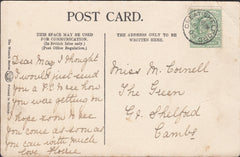 POST CARD.
THIS SPACE MAY BE USED
FOR COMMUNICATION.
(In British Isles only)
(Post Office Regulation.)
THE ADDRESS ONLY TO BE
WRITTEN HERE.
Dear May I thought
I would just send
you a P.C. to see how
you was getting on
I hope soon to see
you come as soon as
you can with much
love Florrie
Miss M. Cornell
The Green
Gt. Shelford
Cambs